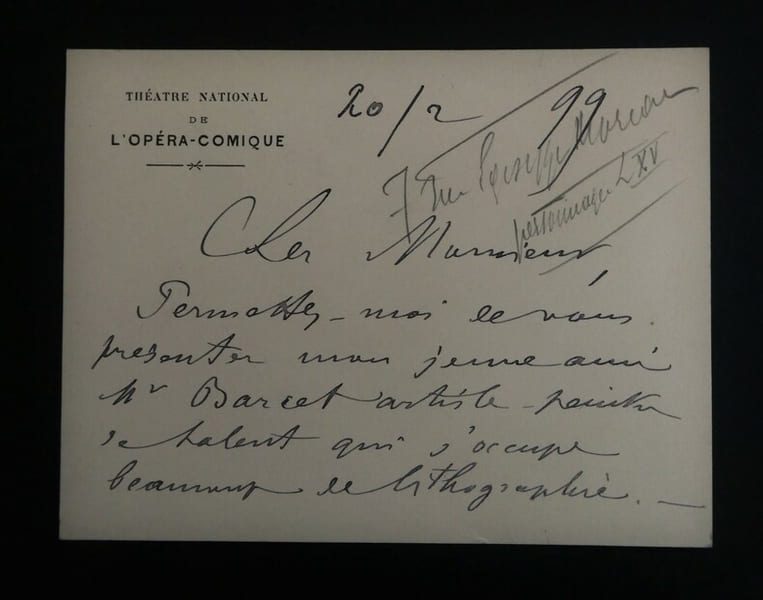 THÉATRE NATIONAL
DE
L'OPÉRA-COMIQUE
20/2 99
7 rue Moreau
personnages L XV
Cher Monsieur,
Permettez-moi de vous
présenter mon jeune ami
Mr Barcet artiste-peintre
de talent qui s'occupe
beaucoup de lithographie. —